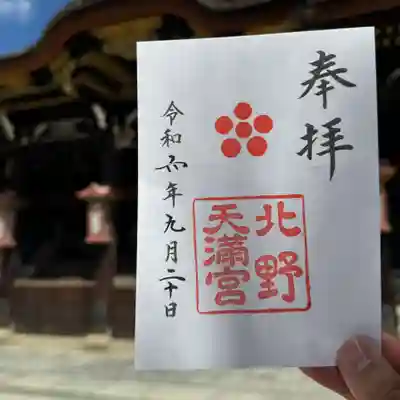 奉拝
北野
天満宮
令和六年九月二十日